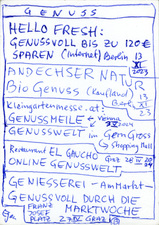 GENUSS
HELLO FRESH:
GENUSSVOLL BIS ZU 120€
SPAREN (Internet) Berlin 13
XI
2023
ANDECHSER NATUR
Bio Genuss (Kaufland) 13
Berl XI
Kleingartenmesse.at: 2023
GENUSSMEILE Vienna
2024
GENUSSWELT im GernGross
Shopping Mall
Restaurant EL GAUCHO Graz 28 IV
04
ONLINE GENUSSWELT
GENIESSEREI - Am Markt -
GENUSSVOLL DURCH DIE
FRANZ MARKTWOCHE
JOSEF
PLATZ 27 IV GRAZ